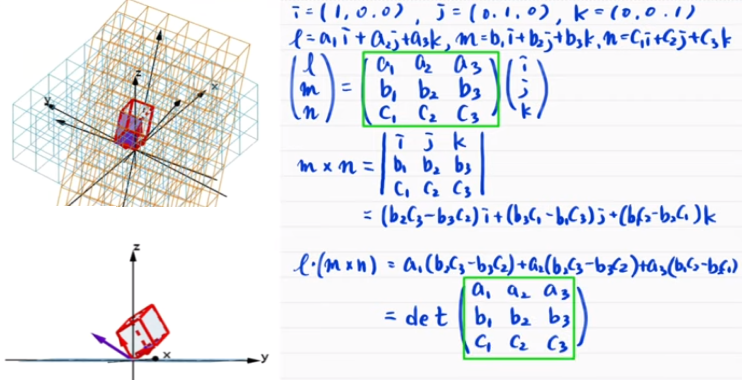 z
y
x
z
x
y
i = (1, 0, 0), j = (0, 1, 0), k = (0, 0, 1)
l = a₁i + a₂j + a₃k, m = b₁i + b₂j + b₃k, n = c₁i + c₂j + c₃k
(l) = (a₁ a₂ a₃) (i)
(m) (b₁ b₂ b₃) (j)
(n) (c₁ c₂ c₃) (k)
m × n = | i j k |
| b₁ b₂ b₃ |
| c₁ c₂ c₃ |
= (b₂c₃ − b₃c₂)i + (b₃c₁ − b₁c₃)j + (b₁c₂ − b₂c₁)k
l·(m × n) = a₁(b₂c₃ − b₃c₂) + a₂(b₂c₃ − b₃c₂) + a₃(b₁c₂ − b₂c₁)
= det (a₁ a₂ a₃)
(b₁ b₂ b₃)
(c₁ c₂ c₃)